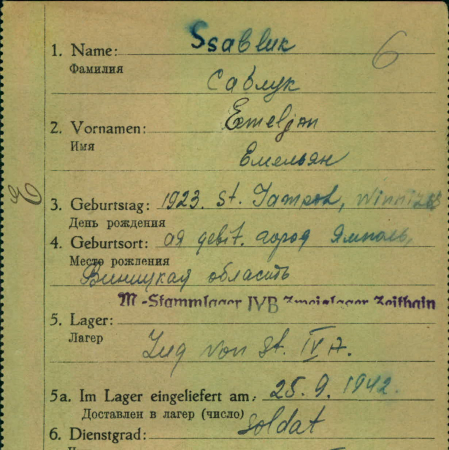 Ssavluk
6
1. Name:
Фамилия
Савлук
2. Vornamen: Emeljan
Имя
Емельян
3. Geburtstag: 1923. St. Jampol, Winniz
День рождения
4. Geburtsort: город Ямполь,
Место рождения
Виницкая область
M-Stammlager IVB Zweiglager Zeithain
5. Lager:
Лагер
Zug von St. IV A.
5a. Im Lager eingeliefert am: 25. 9. 1942.
Доставлен в лагер (число)
6. Dienstgrad: Soldat